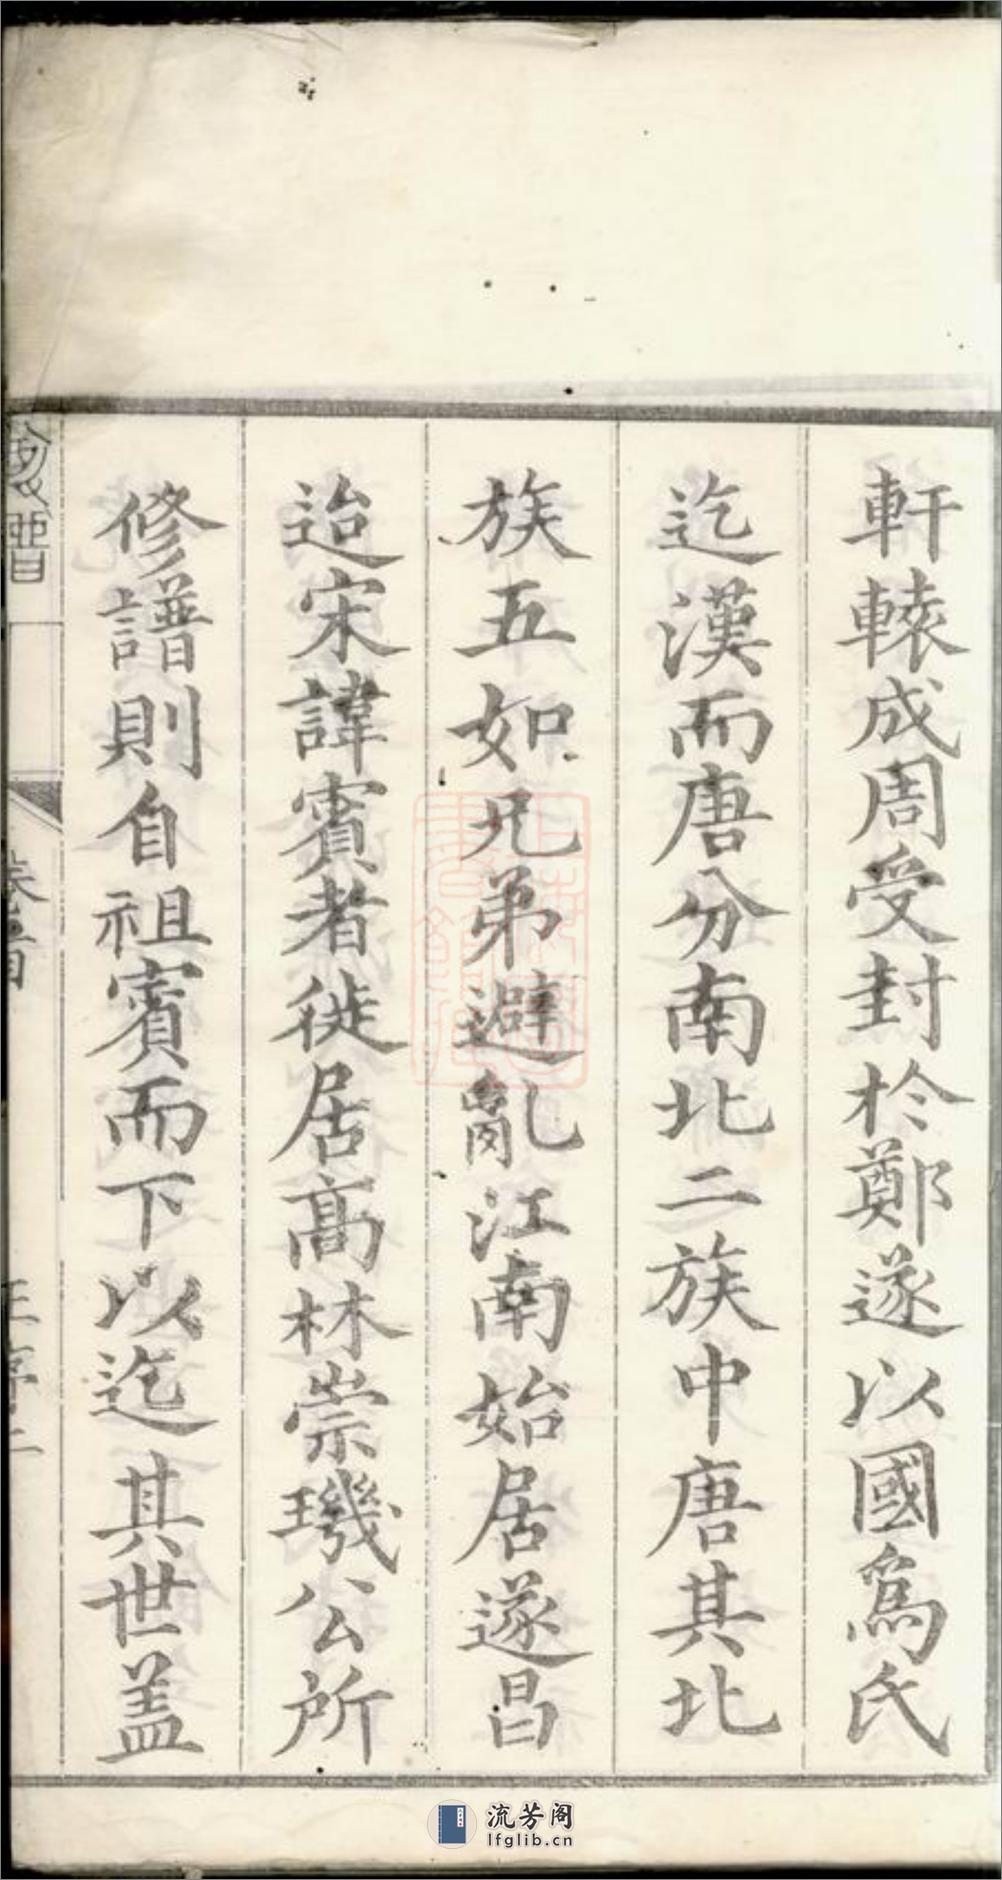 軒轅成周受封於鄭遂以國爲氏
迄漢而唐分南北二族中唐其北
族五如兄弟避亂江南始居遂昌
迨宋諱賓者徙居高林崇璣公所
修譜則自祖賓而下以迄其世盖
卷首
王序二
流芳阁
lfglib.cn